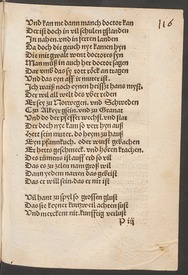 116
Und kan me dann manch doctor kan
Der ist doch in vil schulen gstanden
In nahen, und in ferren landen
Do doch die geuch nye kamen hyn
Die mit gwalt went doctores syn
Man můß in ouch her doctor sagen
Dar umb das sy rott röck an tragen
Und das eyn aff ir můter ist.
Ich weiß noch eynen heißt hans myst
Der will all welt des über reden
Er sey zu Norwegen, und Schweden
Zu Alkeyr gsein, und zu Granat
Und do der pfeffer wechßt, und stat
Der doch nye kam so verr hyn uß
Hett sein můter do heym zu huß
Eyn pfannkuch, oder wurst gebachen
Er hetts geschmeckt, und hören krachen.
Des rümens ist uff erd so vil
Das es zu zelen nem groß wil
Dann yedem narren das gebrist
Das er will sein das er nit ist
Vil hant zu spyl so grossen glust
Das sie keyner kurtzwil achten sust
Und mercken nit künfftig verlust
P iij